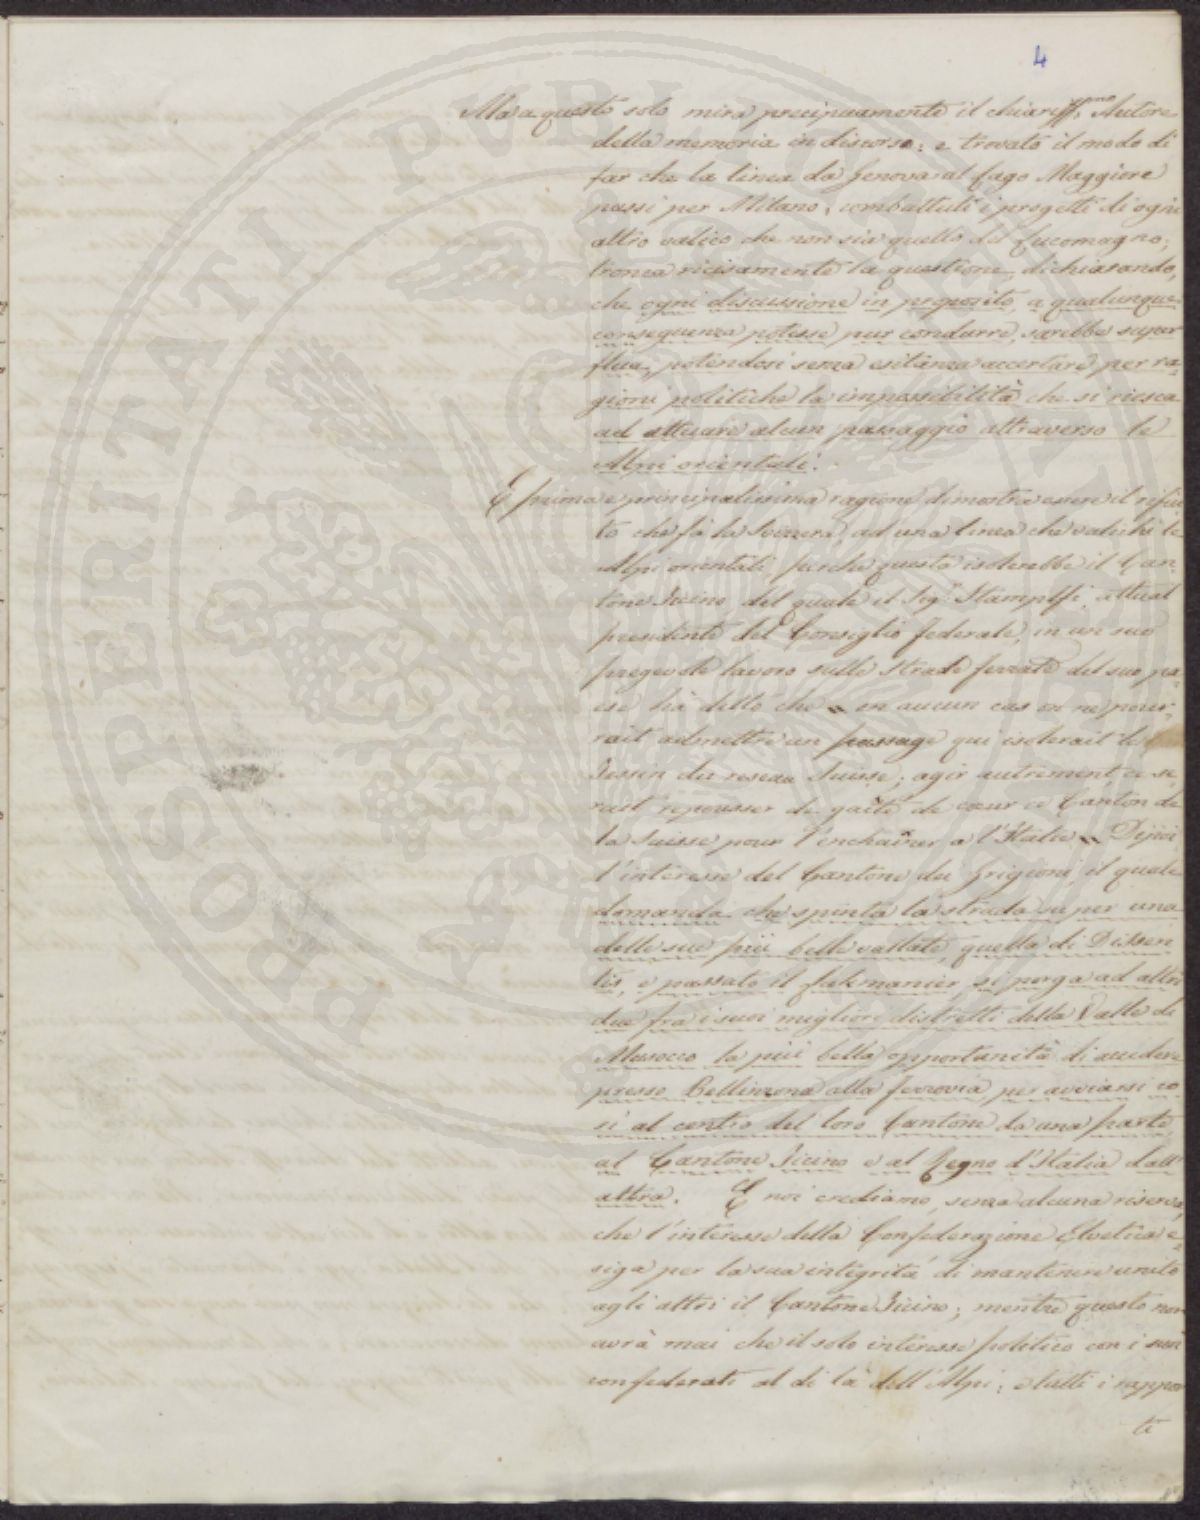 4
Ma a questo solo mira precipuamente il chiariss.mo Autore
della memoria in discorso; e trovato il modo di
far che la linea da Genova al Lago Maggiore
passi per Milano, combattuti i progetti di ogni
altro valico che non sia quello del Lucomagno;
tronca ricisamente la questione, dichiarando,
che ogni discussione in proposito, a qualunque
conseguenza potesse pur condurre, sarebbe super
flua, potendosi senza esitanza accertare, per ra-
gioni politiche la impossibilità che si riesca
ad attuare alcun passaggio attraverso le
Alpi orientali.
E prima e principalissima ragione dimostra essere il rifiu
to che fà la Svizzera, ad una linea che valichi le
Alpi orientali, perche questa isolerebbe il Can-
tone Ticino del quale il Sig.r Stämpfli, attual
presidente del Consiglio federale, in un suo
pregevole lavoro sulle Strade ferrate del suo pa-
ese hà detto che „ en aucun cas on ne pour-
rait admettre un passage qui isolerait le
Tessin du reseau Suisse; agir autrement, ce se-
rait repousser de gaîté de cœur ce Canton de
la Suisse pour l'enchaîner a l'Italie „ Dippoi
l'interesse del Cantone dei Grigioni, il quale
domanda che spinta la strada su per una
delle sue più belle vallate, quella di Dissen
tis, e passato il Lukmanier, si porga ad altri
due fra i suoi migliori distretti della Valle di
Mesocco la più bella opportunità di accedere
presso Bellinzona alla ferrovia per avviarsi co
sì al centro del loro Cantone da una parte,
al Cantone Ticino e al Regno d'Italia dall'
altra. E noi crediamo, senza alcuna riserva,
che l'interesse della Confederazione Elvetica e-
siga per la sua integrità di mantenere unito
agli altri il Cantone Ticino; mentre questo non
avrà mai che il solo interesse politico con i suoi
confederati al di là dell'Alpi; e tutti i rappor
ti
PROSPERITATI PUBLICAE